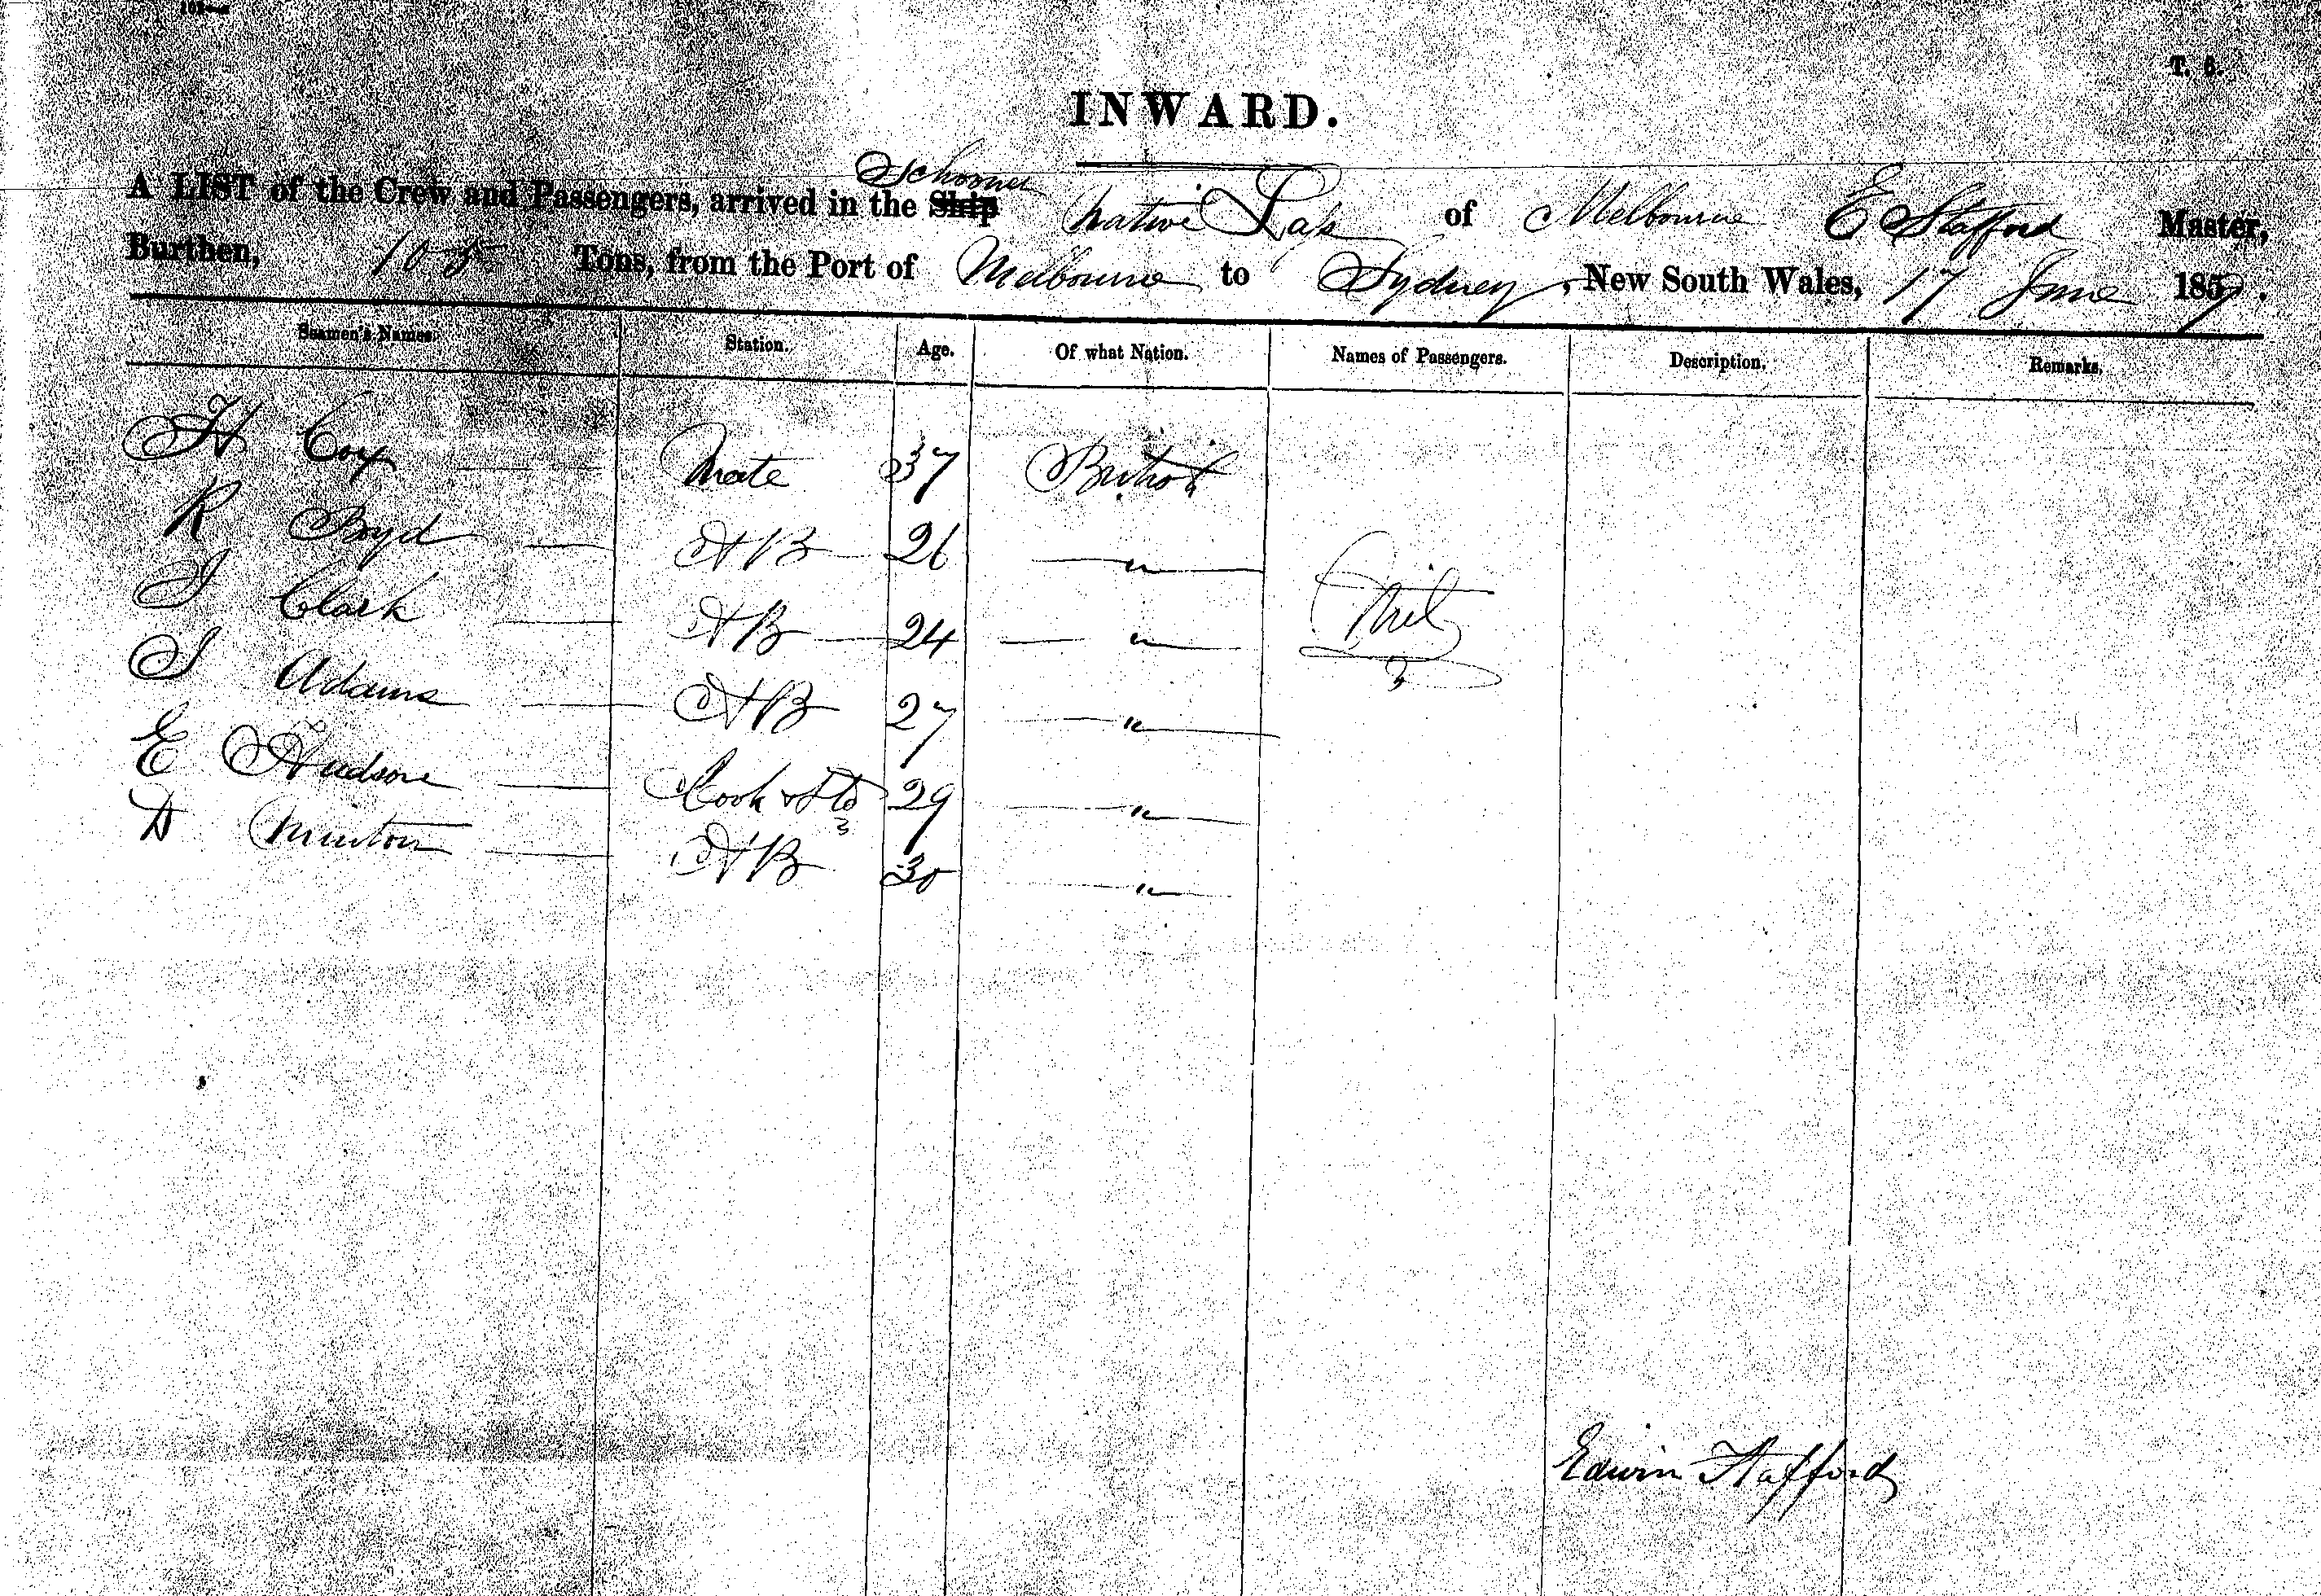 T. 6.
INWARD.
Schooner
A LIST of the Crew and Passengers, arrived in the Ship Native Lass of Melbourne E Stafford Master,
Burthen, 105 Tons, from the Port of Melbourne to Sydney, New South Wales, 17 June 1859.
Seamen's Names. Station. Age. Of what Nation. Names of Passengers. Description. Remarks.
H Cox Mate 37 British
R Boyd AB 26 "
J Clark AB 24 "
Nil
J Adams AB 27 "
E Hudson Cook & Std 29 "
D Minton AB 30 "
Edwin Stafford